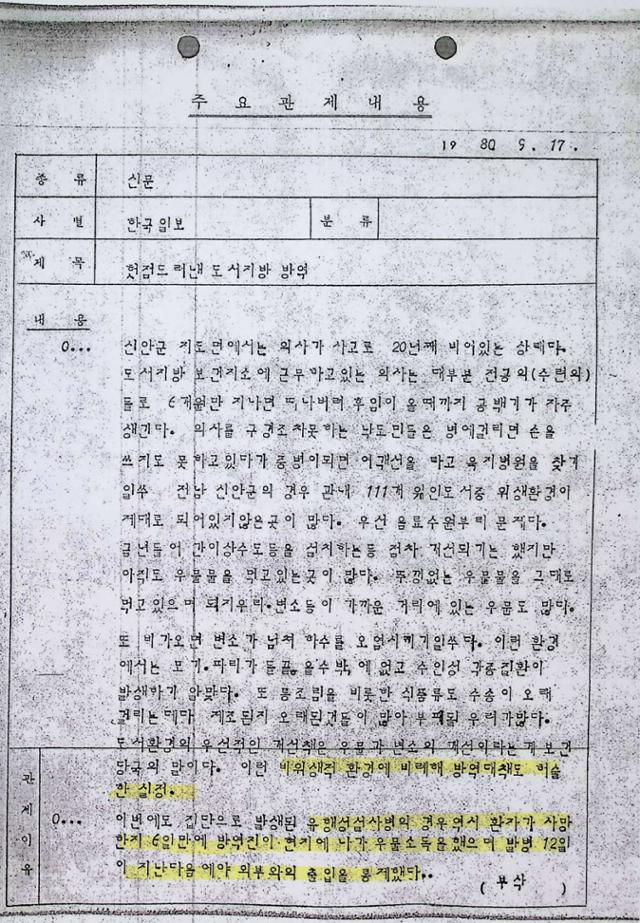 주 요 관 제 내 용
19 80 9. 17.
종 류 신문
사 별 한국일보 분 류
제 목 헛점드러낸 도서지방 방역
내 용
0... 신안군 지도면에서는 의사가 사고로 20년째 비어있는 상태다.
도서지방 보건지소에 근무하고있는 의사는 대부분 전공의(수련의)
들로 6개월만 지나면 떠나버려 후임이 올때까지 공백기가 자주
생긴다. 의사를 구경조차못하는 낙도민들은 병에걸리면 손을
쓰지도 못하고있다가 중병이되면 여객선을 타고 육지병원을 찾기
일쑤 전남 신안군의 경우 관내 111개 유인도서중 위생환경이
제대로 되어있지않은곳이 많다. 우선 음료수원부터 문제다.
금년들어 간이상수도등을 설치하는등 점차 개선되기는 했지만
아직도 우물물을 먹고있는곳이 많다. 뚜껑없는 우물물을 그대로
먹고있으며 돼지우리.변소등이 가까운 거리에 있는 우물도 많다.
또 비가오면 변소가 넘쳐 하수를 오염시키기일쑤다. 이런 환경
에서는 모기.파리가 들끓을수밖에 없고 수인성 각종질환이
발생하기 알맞다. 또 통조림을 비롯한 식품류도 수송이 오래
걸리는데다 제조된지 오래된것들이 많아 부패될 우려가많다.
도서환경의 우선적인 개선책은 우물과 변소의 개선이라는게 보건
당국의 말이다. 이런 비위생적 환경에 비례해 방역대책도 허술
한 실정.
관 제 이 유
0... 이번에도 집단으로 발생된 유행성설사병의 경우역시 환자가 사망
한지 6일만에 방역진이 현지에 나가 우물소독을했으며 발병 12일
이 지난다음에야 외부와의 출입을 통제했다..
( 부산 )